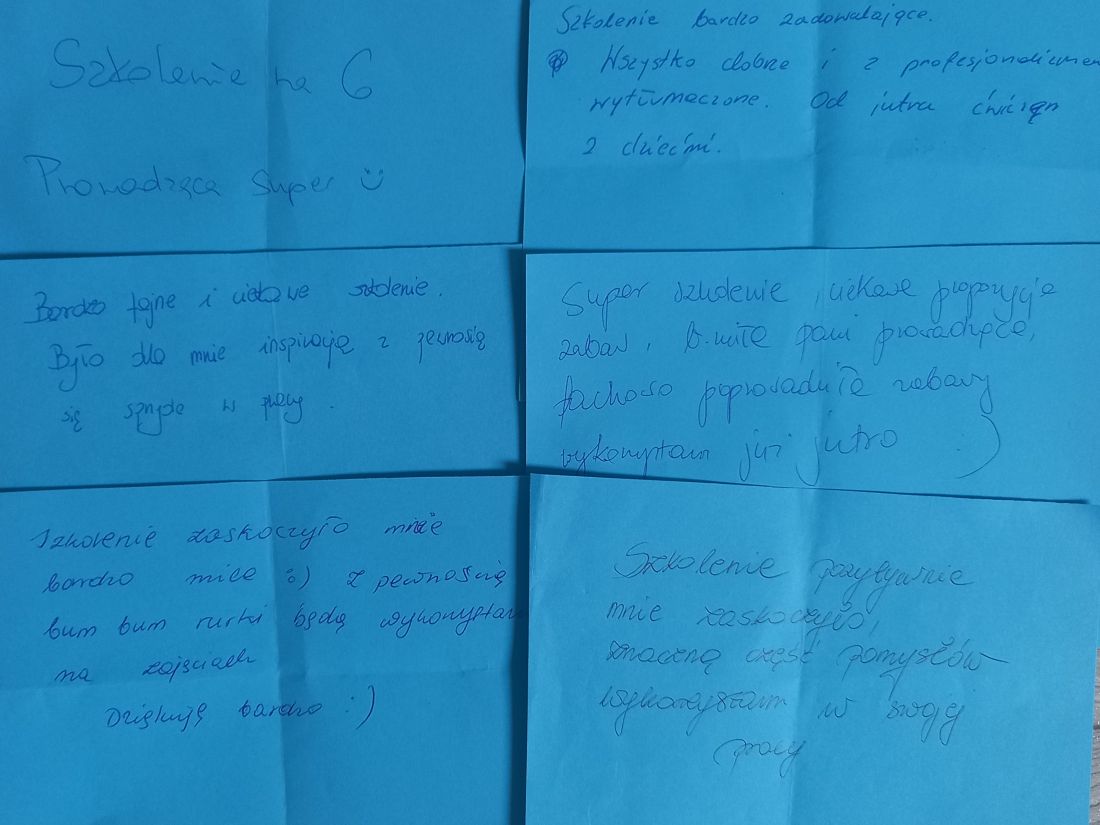 Szkolenie na 6
Prowadząca super :)
Szkolenie bardzo zadowalające.
Wszystko dobrze i z profesjonalizmem
wytłumaczone. Od jutra ćwiczę
z dziećmi.
Bardzo fajne i ciekawe szkolenie.
Było dla mnie inspiracją z pewnością
się w pracy.
Super szkolenie, ciekawe propozycje
zabaw, b. miłe pani prowadzące,
fachowo poprowadziła zabawy
wykorzystam już jutro :)
Szkolenie zaskoczyło mnie
bardzo miło :) Z pewnością
bum bum rurki będę wykorzystam
na zajęciach
Dziękuję bardzo :)
Szkolenie pozytywnie
mnie zaskoczyło,
znaczną część pomysłów
wykorzystam w swojej
pracy